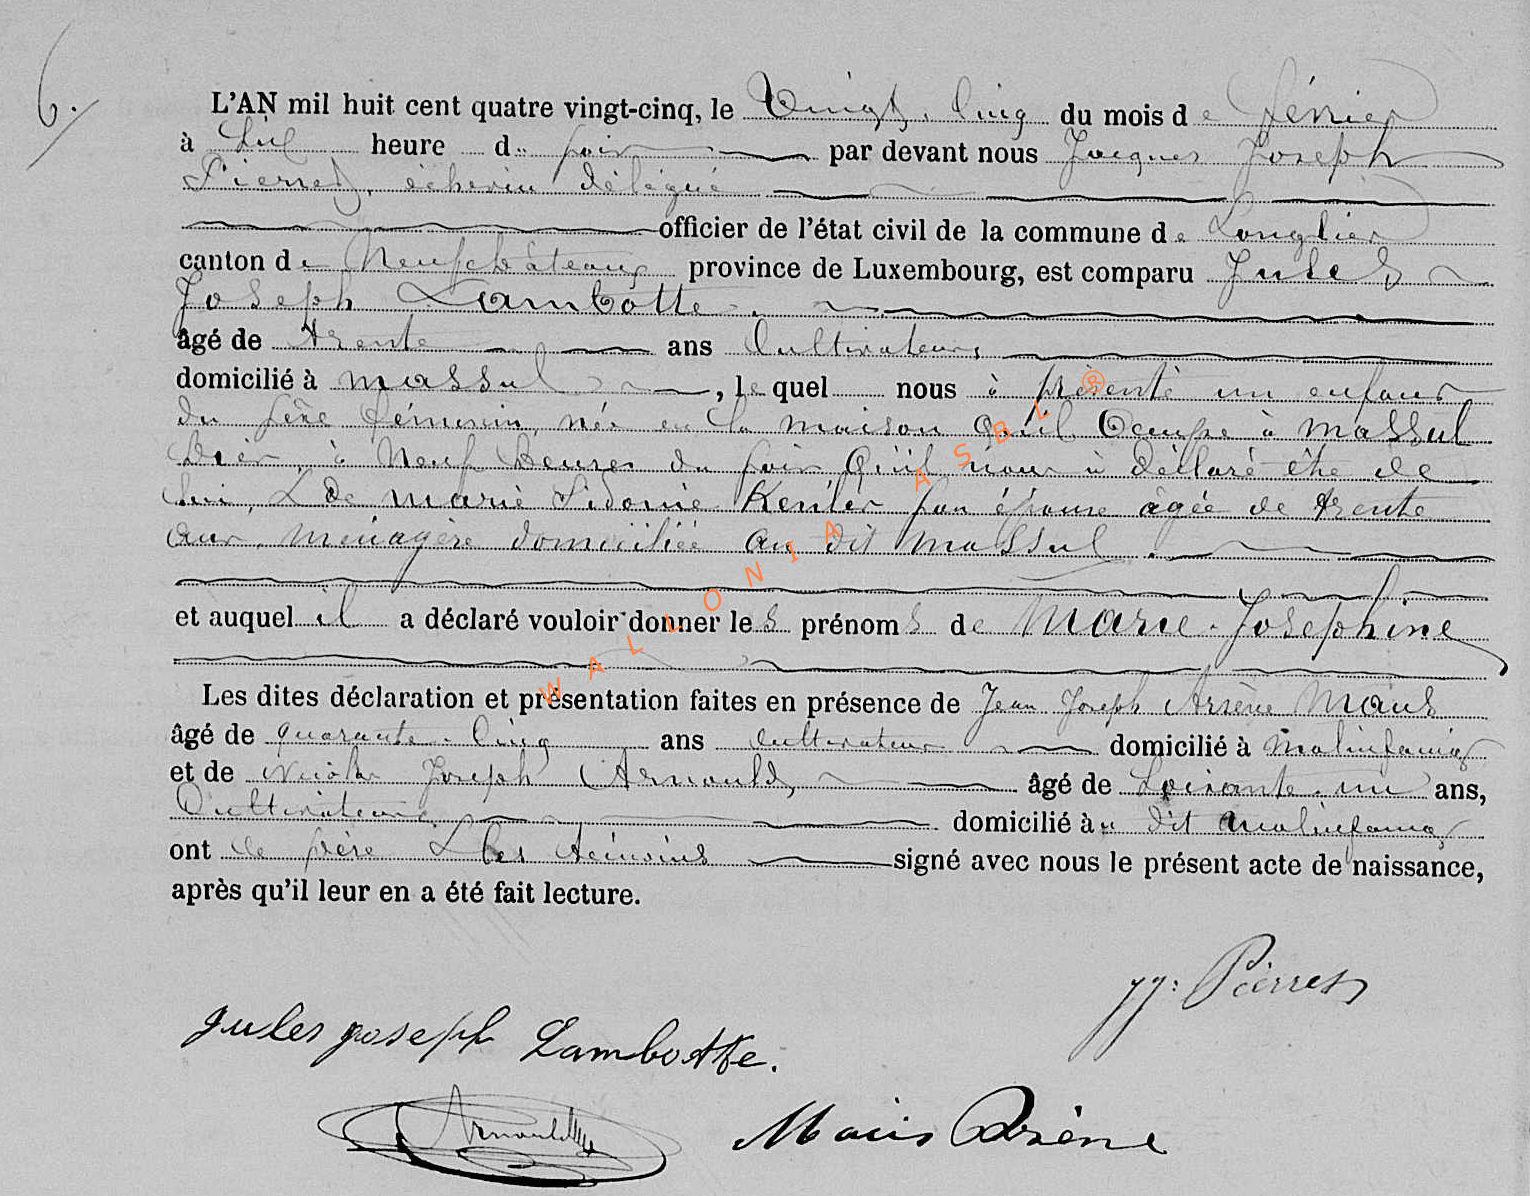 6.
L'AN mil huit cent quatre vingt-cinq, le Vingt-Cinq du mois de février
à six heure du soir par devant nous Jacques Joseph
Pierret, échevin délégué
officier de l'état civil de la commune de Longlier
canton de Neufchâteau province de Luxembourg, est comparu Jules
Joseph Lambotte
âgé de trente ans Cultivateur,
domicilié à Massul, lequel nous à présenté un enfant
du sèxe féminin, née en la maison qu'il Occupe à Massul
hier, à Neuf heures du soir qu'il nous à déclaré être de
lui, & de Marie Sidonie son épouse âgée de trente
ans, ménagère domiciliée au dit Massul.
et auquel il a déclaré vouloir donner les prénoms de Marie-Joséphine
Les dites déclaration et présentation faites en présence de Jean Joseph Arsène Maus
âgé de quarante-Cinq ans cultivateur domicilié à Malinfaing
et de Nicolas Joseph Arnould, âgé de Soixante-un ans,
Cultivateur domicilié à u dit Malinfaing
ont le père & les témoins signé avec nous le présent acte de naissance,
après qu'il leur en a été fait lecture.
JJ: Pierret
Jules joseph Lambotte.
Arnould Maus Arsène
WALLONIA ASBL ®